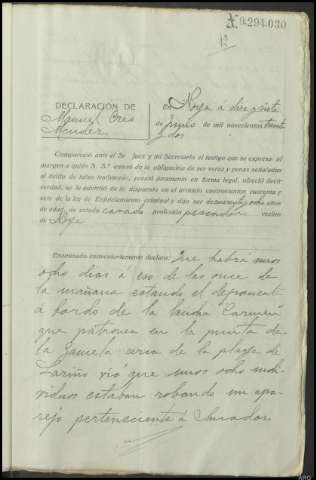 A.9.294.030
12
DECLARACION DE
Manuel Ores
Mender
en Noya a diecisiete
de Junio de mil novecientos treinta
y dos
Comparece ante el Sr. Juez y mi Secretario el testigo que se expresa al
margen a quién S. Sª. entera de la obligación de ser veraz y penas señaladas
al delito de falso testimonio; prestó juramento en forma legal, ofreció decir
verdad, se le advirtió de lo dispuesto en el artículo cuatrocientos cuarenta y
seis de la ley de Enjuiciamiento criminal y dijo ser de cuarenta y ocho años
de edad, de estado casado profesión pescador vecino
de Noya
Examinado convenientemente declara: Que habrá unos
ocho días á eso de las once de
la mañana estando el deponente
á bordo de la lancha Carmen
que patronea en la punta de
la Gamela cerca de la playa de
Lariño vio que unos ocho indi-
viduos estaban robando un apa-
rejo perteneciente á Salvador